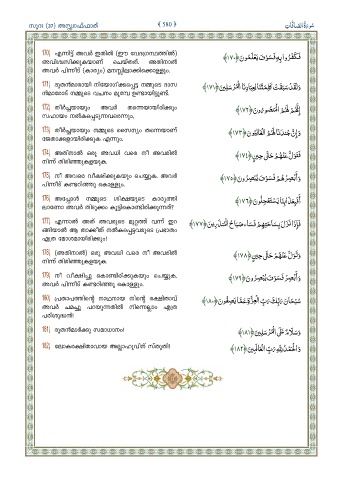 സൂറ (37) അസ്സ്വാഫ്ഫാത്
﴾ 580 ﴿
سورة الصافات
170) എന്നിട്ട് അവർ ഇതിൽ (ഈ വേദഗ്രന്ഥത്തിൽ)
അവിശ്വസിക്കുകയാണ് ചെയ്തത്. അതിനാൽ
അവർ പിന്നീട് (കാര്യം) മനസ്സിലാക്കിക്കൊള്ളും.
فَكَفَرُوا بِهِ فَسَوْفَ يَعْلَمُونَ ﴿١٧٠﴾
171) ദൂതന്മാരായി നിയോഗിക്കപ്പെട്ട നമ്മുടെ ദാസ
ന്മാരോട് നമ്മുടെ വചനം മുമ്പേ ഉണ്ടായിട്ടുണ്ട്.
وَلَقَدْ سَبَقَتْ كَلِمَتُنَا لِعِبَادِنَا الْمُرْسَلِينَ ﴿١٧١﴾
172) തീർച്ചയായും അവർ തന്നെയായിരിക്കും
സഹായം നൽകപ്പെടുന്നവരെന്നും,
إِنَّهُمْ لَهُمُ الْمَنصُورُونَ ﴿١٧٢﴾
173) തീർച്ചയായും നമ്മുടെ സൈന്യം തന്നെയാണ്
ജേതാക്കളായിരിക്കുക എന്നും.
وَإِنَّ جُندَنَا لَهُمُ الْغَالِبُونَ ﴿١٧٣﴾
174) അതിനാൽ ഒരു അവധി വരെ നീ അവരിൽ
നിന്ന് തിരിഞ്ഞുകളയുക.
فَتَوَلَّ عَنْهُمْ حَتَّى حِينٍ ﴿١٧٤﴾
175) നീ അവരെ വീക്ഷിക്കുകയും ചെയ്യുക. അവർ
പിന്നീട് കണ്ടറിഞ്ഞു കൊള്ളും.
وَأَبْصِرْهُمْ فَسَوْفَ يُبْصِرُونَ ﴿١٧٥﴾
176) അപ്പോൾ നമ്മുടെ ശിക്ഷയുടെ കാര്യത്തി
ലാണോ അവർ തിടുക്കം കൂട്ടിക്കൊണ്ടിരിക്കുന്നത്?
أَفَبِعَذَابِنَا يَسْتَعْجِلُونَ ﴿١٧٦﴾
177) എന്നാൽ അത് അവരുടെ മുറ്റത്ത് വന്ന് ഇറ
ങ്ങിയാൽ ആ താക്കീത് നൽകപ്പെട്ടവരുടെ പ്രഭാതം
എത്ര മോശമായിരിക്കും!
فَإِذَا نَزَلَ بِسَاحَتِهِمْ فَسَاء صَبَاحُ الْمُنذَرِينَ ﴿١٧٧﴾
178) (അതിനാൽ) ഒരു അവധി വരെ നീ അവരിൽ
നിന്ന് തിരിഞ്ഞുകളയുക.
وَتَوَلَّ عَنْهُمْ حَتَّى حِينٍ ﴿١٧٨﴾
179) നീ വീക്ഷിച്ചു കൊണ്ടിരിക്കുകയും ചെയ്യുക,
അവർ പിന്നീട് കണ്ടറിഞ്ഞു കൊള്ളും.
وَأَبْصِرْ فَسَوْفَ يُبْصِرُونَ ﴿١٧٩﴾
180) പ്രതാപത്തിന്റെ നാഥനായ നിന്റെ രക്ഷിതാവ്
അവർ ചമച്ചു പറയുന്നതിൽ നിന്നെല്ലാം എത്ര
പരിശുദ്ധൻ!
سُبْحَانَ رَبِّكَ رَبِّ الْعِزَّةِ عَمَّا يَصِفُونَ ﴿١٨٠﴾
181) ദൂതന്മാർക്കു സമാധാനം!
وَسَلَامٌ عَلَى الْمُرْسَلِينَ ﴿١٨١﴾
182) ലോകരക്ഷിതാവായ അല്ലാഹുവിന് സ്തുതി!
وَالْحَمْدُ لِلَّهِ رَبِّ الْعَالَمِينَ ﴿١٨٢﴾